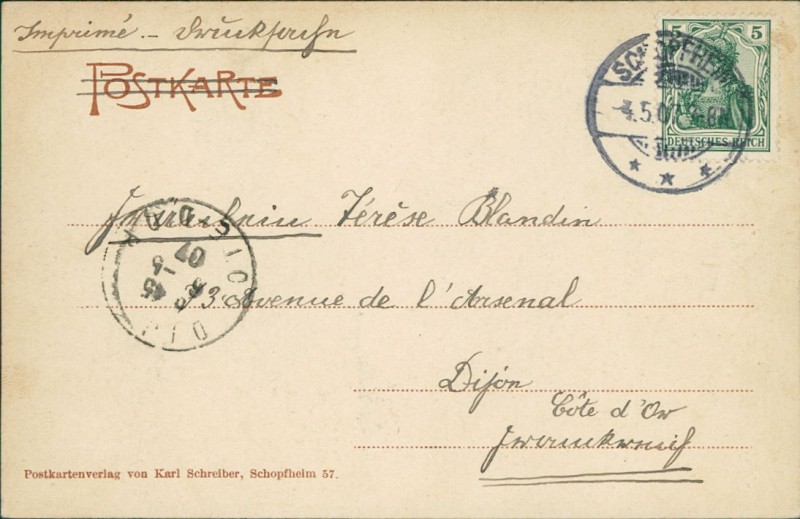 Imprimé. - Drucksache
POSTKARTE
5 5
DEUTSCHES REICH
SCHOPFHEIM
4.5.07
Fräulein Térèse Blandin
93 Avenue de l'Arsenal
Dijon
Côte d'Or
Frankreich
DIJON
07
Postkartenverlag von Karl Schreiber, Schopfheim 57.